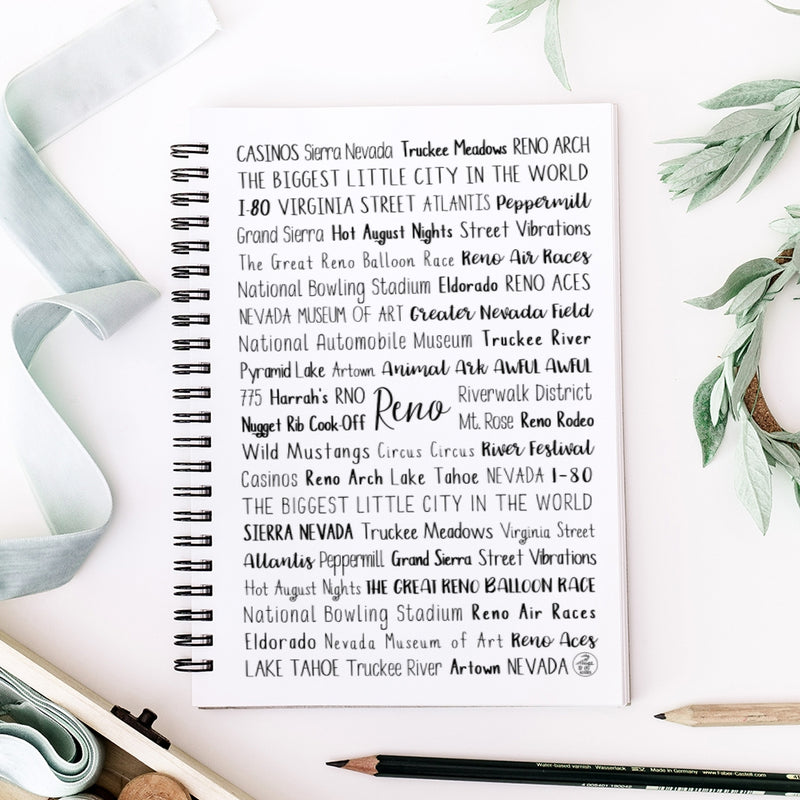 CASINOS Sierra Nevada Truckee Meadows RENO ARCH
THE BIGGEST LITTLE CITY IN THE WORLD
I-80 VIRGINIA STREET ATLANTIS Peppermill
Grand Sierra Hot August Nights Street Vibrations
The Great Reno Balloon Race Reno Air Races
National Bowling Stadium Eldorado RENO ACES
NEVADA MUSEUM OF ART Greater Nevada Field
National Automobile Museum Truckee River
Pyramid Lake Artown Animal Ark AWFUL AWFUL
775 Harrah's RNO Reno Riverwalk District
Nugget Rib Cook-Off Mt. Rose Reno Rodeo
Wild Mustangs Circus Circus River Festival
Casinos Reno Arch Lake Tahoe NEVADA I-80
THE BIGGEST LITTLE CITY IN THE WORLD
SIERRA NEVADA Truckee Meadows Virginia Street
Atlantis Peppermill Grand Sierra Street Vibrations
Hot August Nights THE GREAT RENO BALLOON RACE
National Bowling Stadium Reno Air Races
Eldorado Nevada Museum of Art Reno Aces
LAKE TAHOE Truckee River Artown NEVADA
Water-based varnish Wasserlack Made in Germany www.Faber-Castell.com